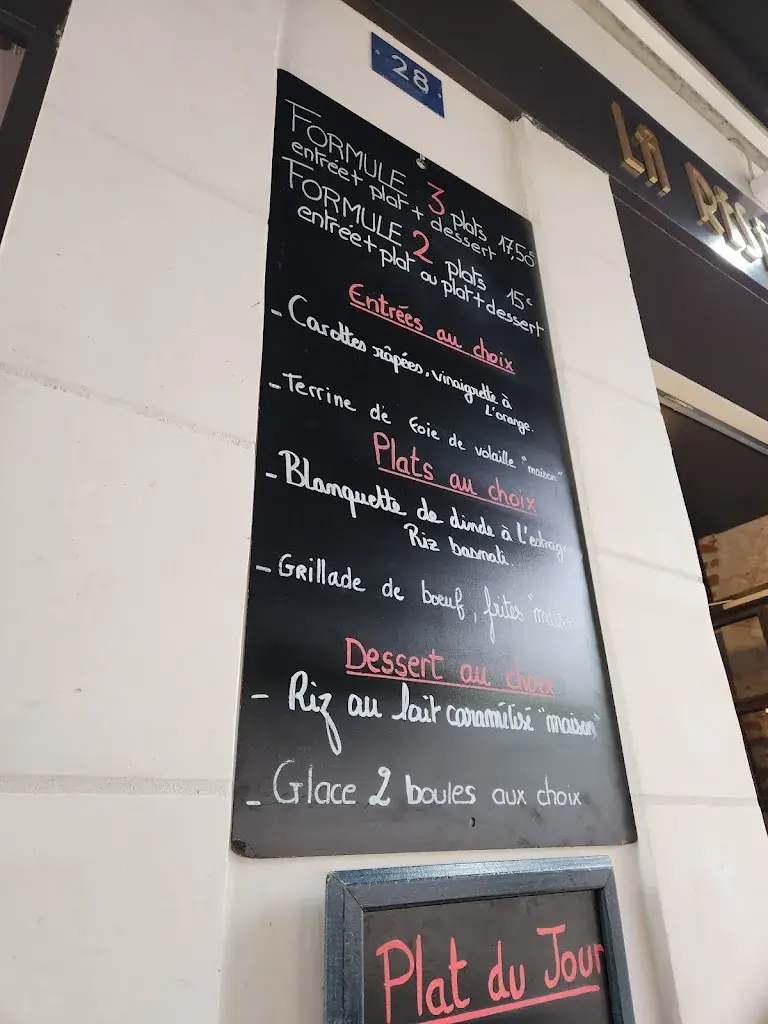 28
LA
FORMULE 3 plats 17,50€
entrée+ plat + dessert
FORMULE 2 plats 15€
entrée+plat ou plat+dessert
Entrées au choix
- Carottes râpées, vinaigrette à
L'orange.
- Terrine de foie de volaille "maison"
Plats au choix
- Blanquette de dinde à l'estrag
Riz basmati.
- Grillade de boeuf, frites "maison
Dessert au choix
- Riz au lait caramélisé "maison"
- Glace 2 boules aux choix
Plat du Jour